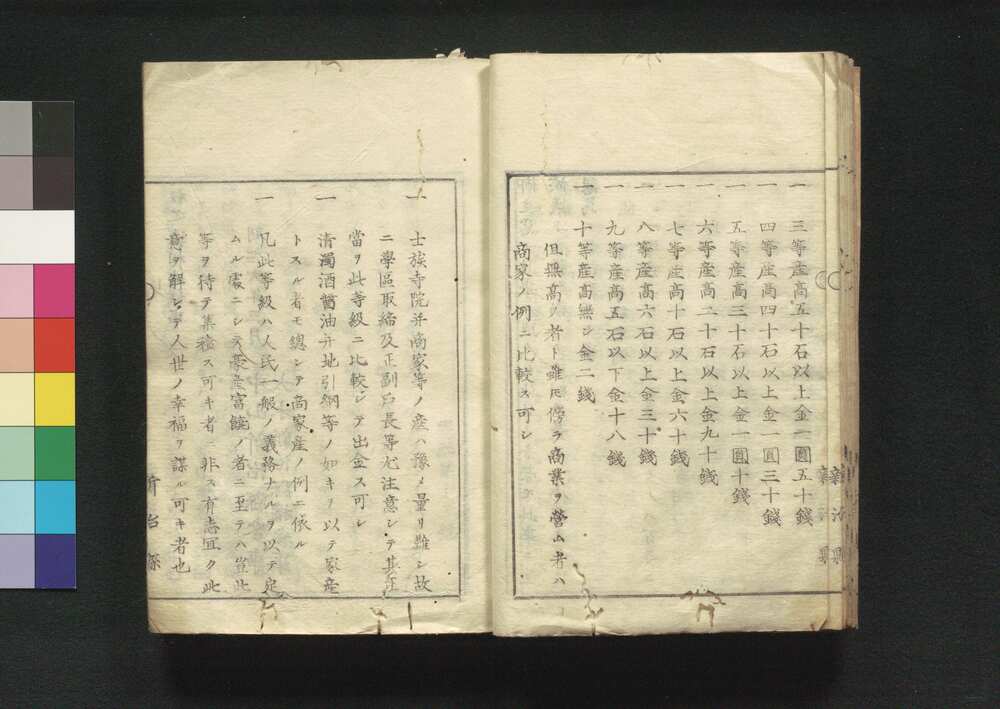 一 三等産高五十石以上金一圓五十錢
一 四等産高四十石以上金一圓三十錢
一 五等産高三十石以上金一圓十錢
一 六等産高二十石以上金九十錢
一 七等産高十石以上金六十錢
一 八等産高六石以上金三十錢
一 九等産高五石以下金十八錢
一 十等産高無シ金二錢
但無高ノ者ト雖𪜈傍ラ商業ヲ營ム者ハ
商家ノ例ニ比較ス可シ
一 士族寺院并商家等ノ産ハ豫メ量リ難シ故
ニ學區取締及正副戸長等尤注意シテ其正
當ヲ此等級ニ比較シテ出金ス可シ
一 清濁酒醤油并地引網等ノ如キヲ以テ家産
トスル者モ總シテ商家産ノ例ニ依ル
一 凡此等級ハ人民一般ノ義務ナルヲ以テ定
ムル處ニシテ豪産富饒ノ者ニ至テハ豈此
等ヲ待テ集穡ス可キ者ニ非ス有志宜ク此
意ヲ解シテ人世ノ幸福ヲ謀ル可キ者也
新治縣